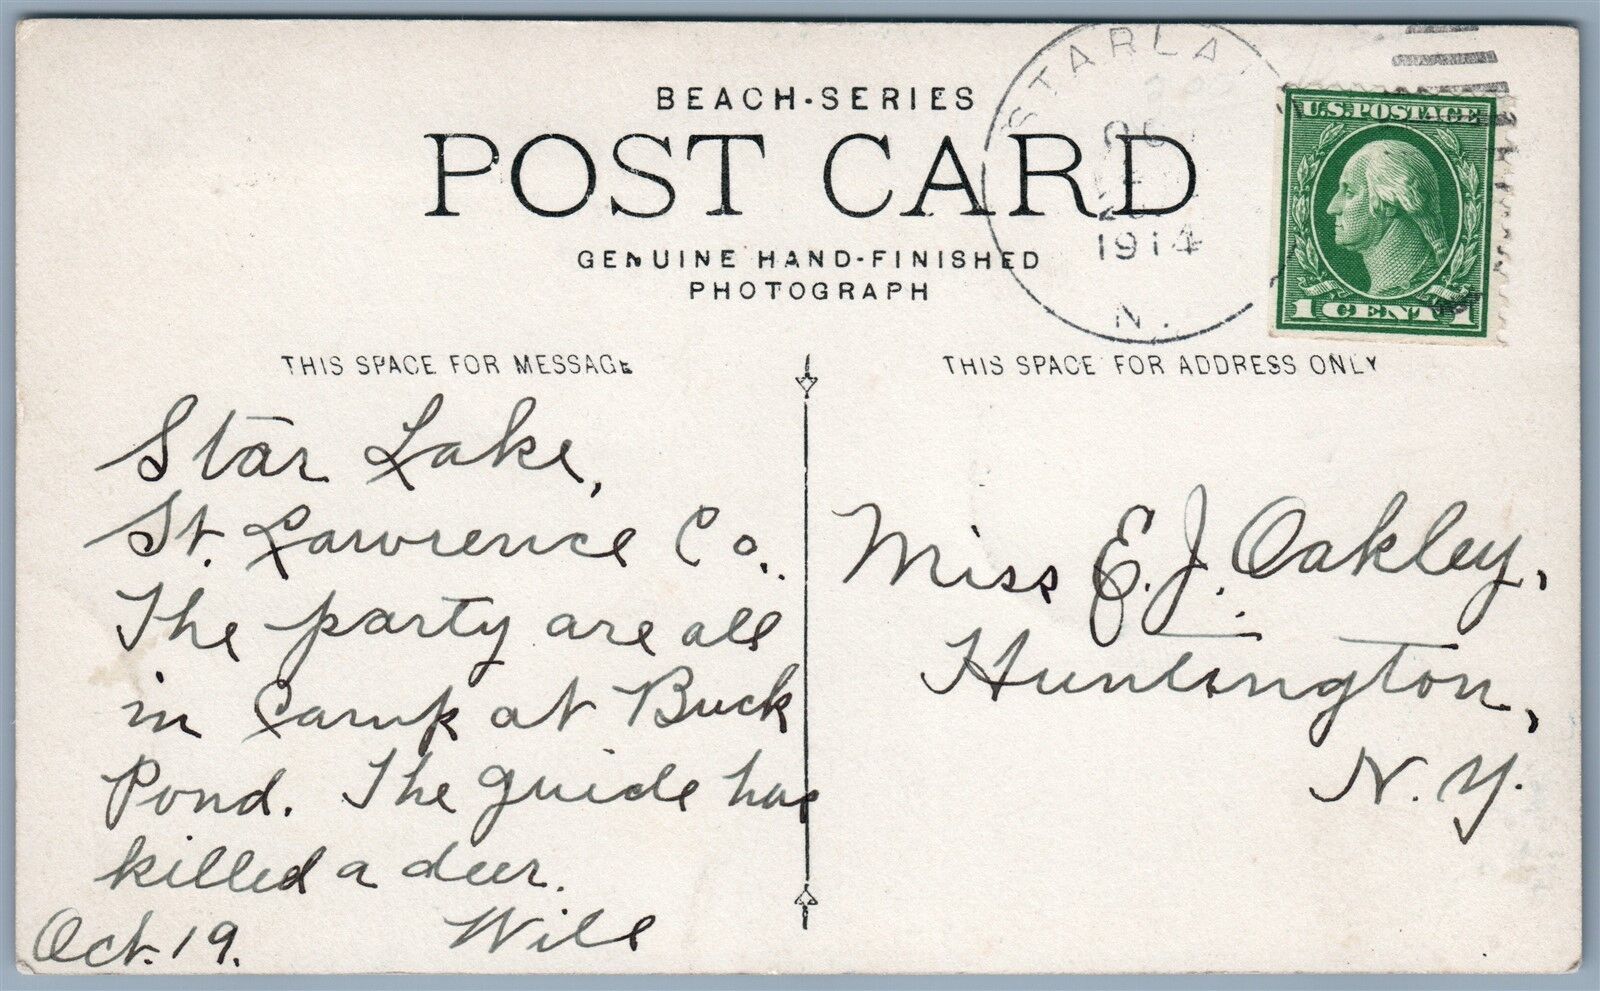 BEACH-SERIES
POST CARD
GENUINE HAND-FINISHED
PHOTOGRAPH
STAR LA
1914
N.
U.S. POSTAGE
1 CENT 1
THIS SPACE FOR MESSAGE
Star Lake,
St. Lawrence Co.
The party are all
in Camp at Buck
Pond. The guide has
killed a deer.
Oct. 19. Will
THIS SPACE FOR ADDRESS ONLY
Miss E. J. Oakley,
Huntington,
N. Y.